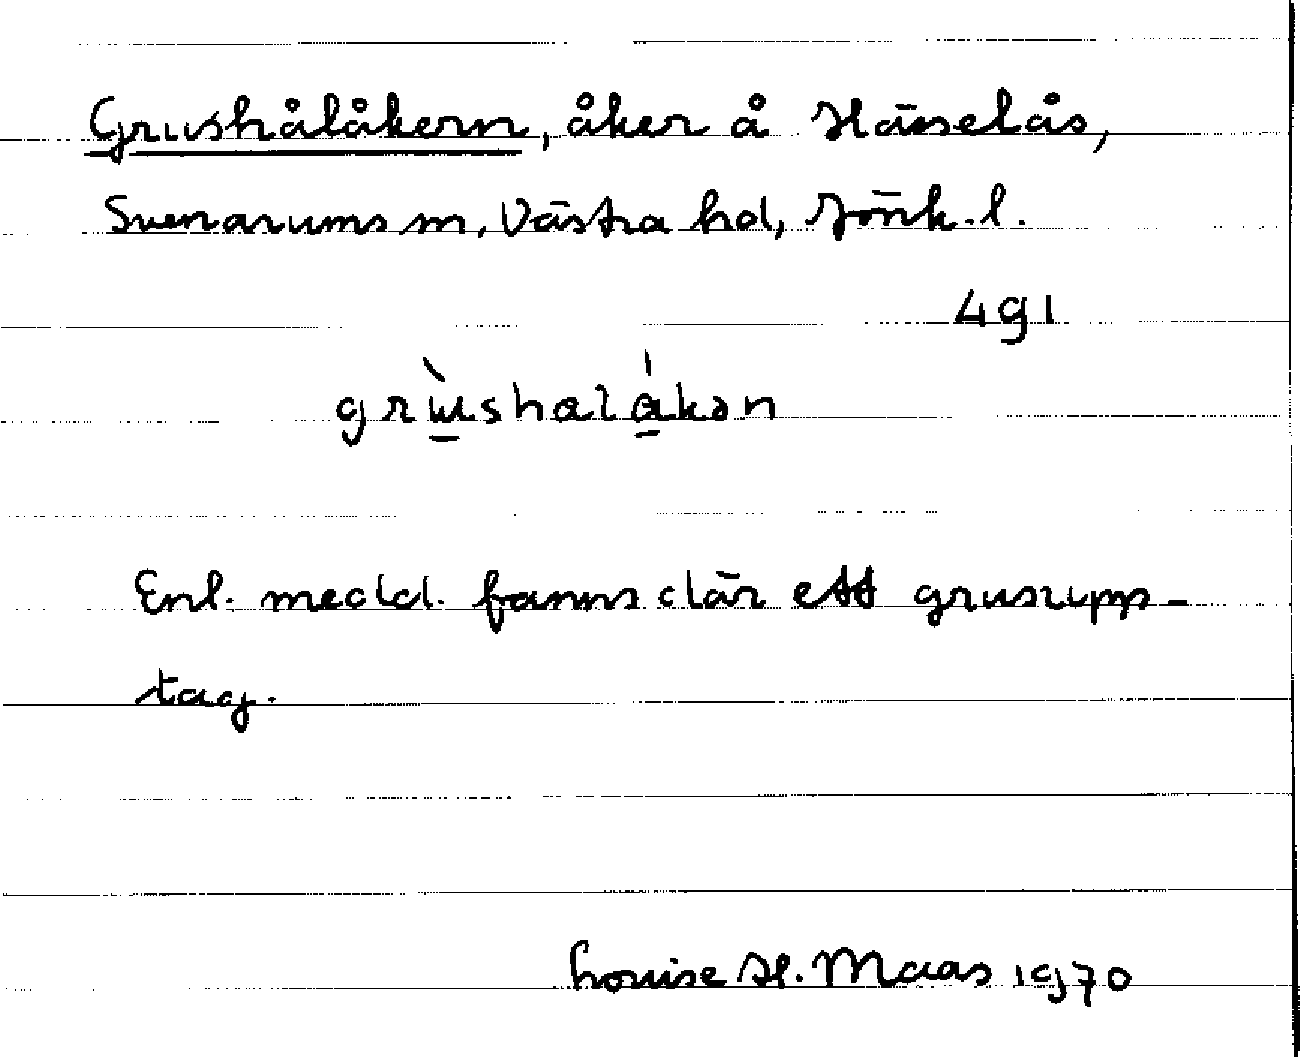 Grushålåkern, åker å Hässelås,
Svenarums sn, Västra hd, Jönk. l.
491
grùshalákən
Enl. medd. fanns där ett grusupp-
tag.
Louise H. Maas 1970